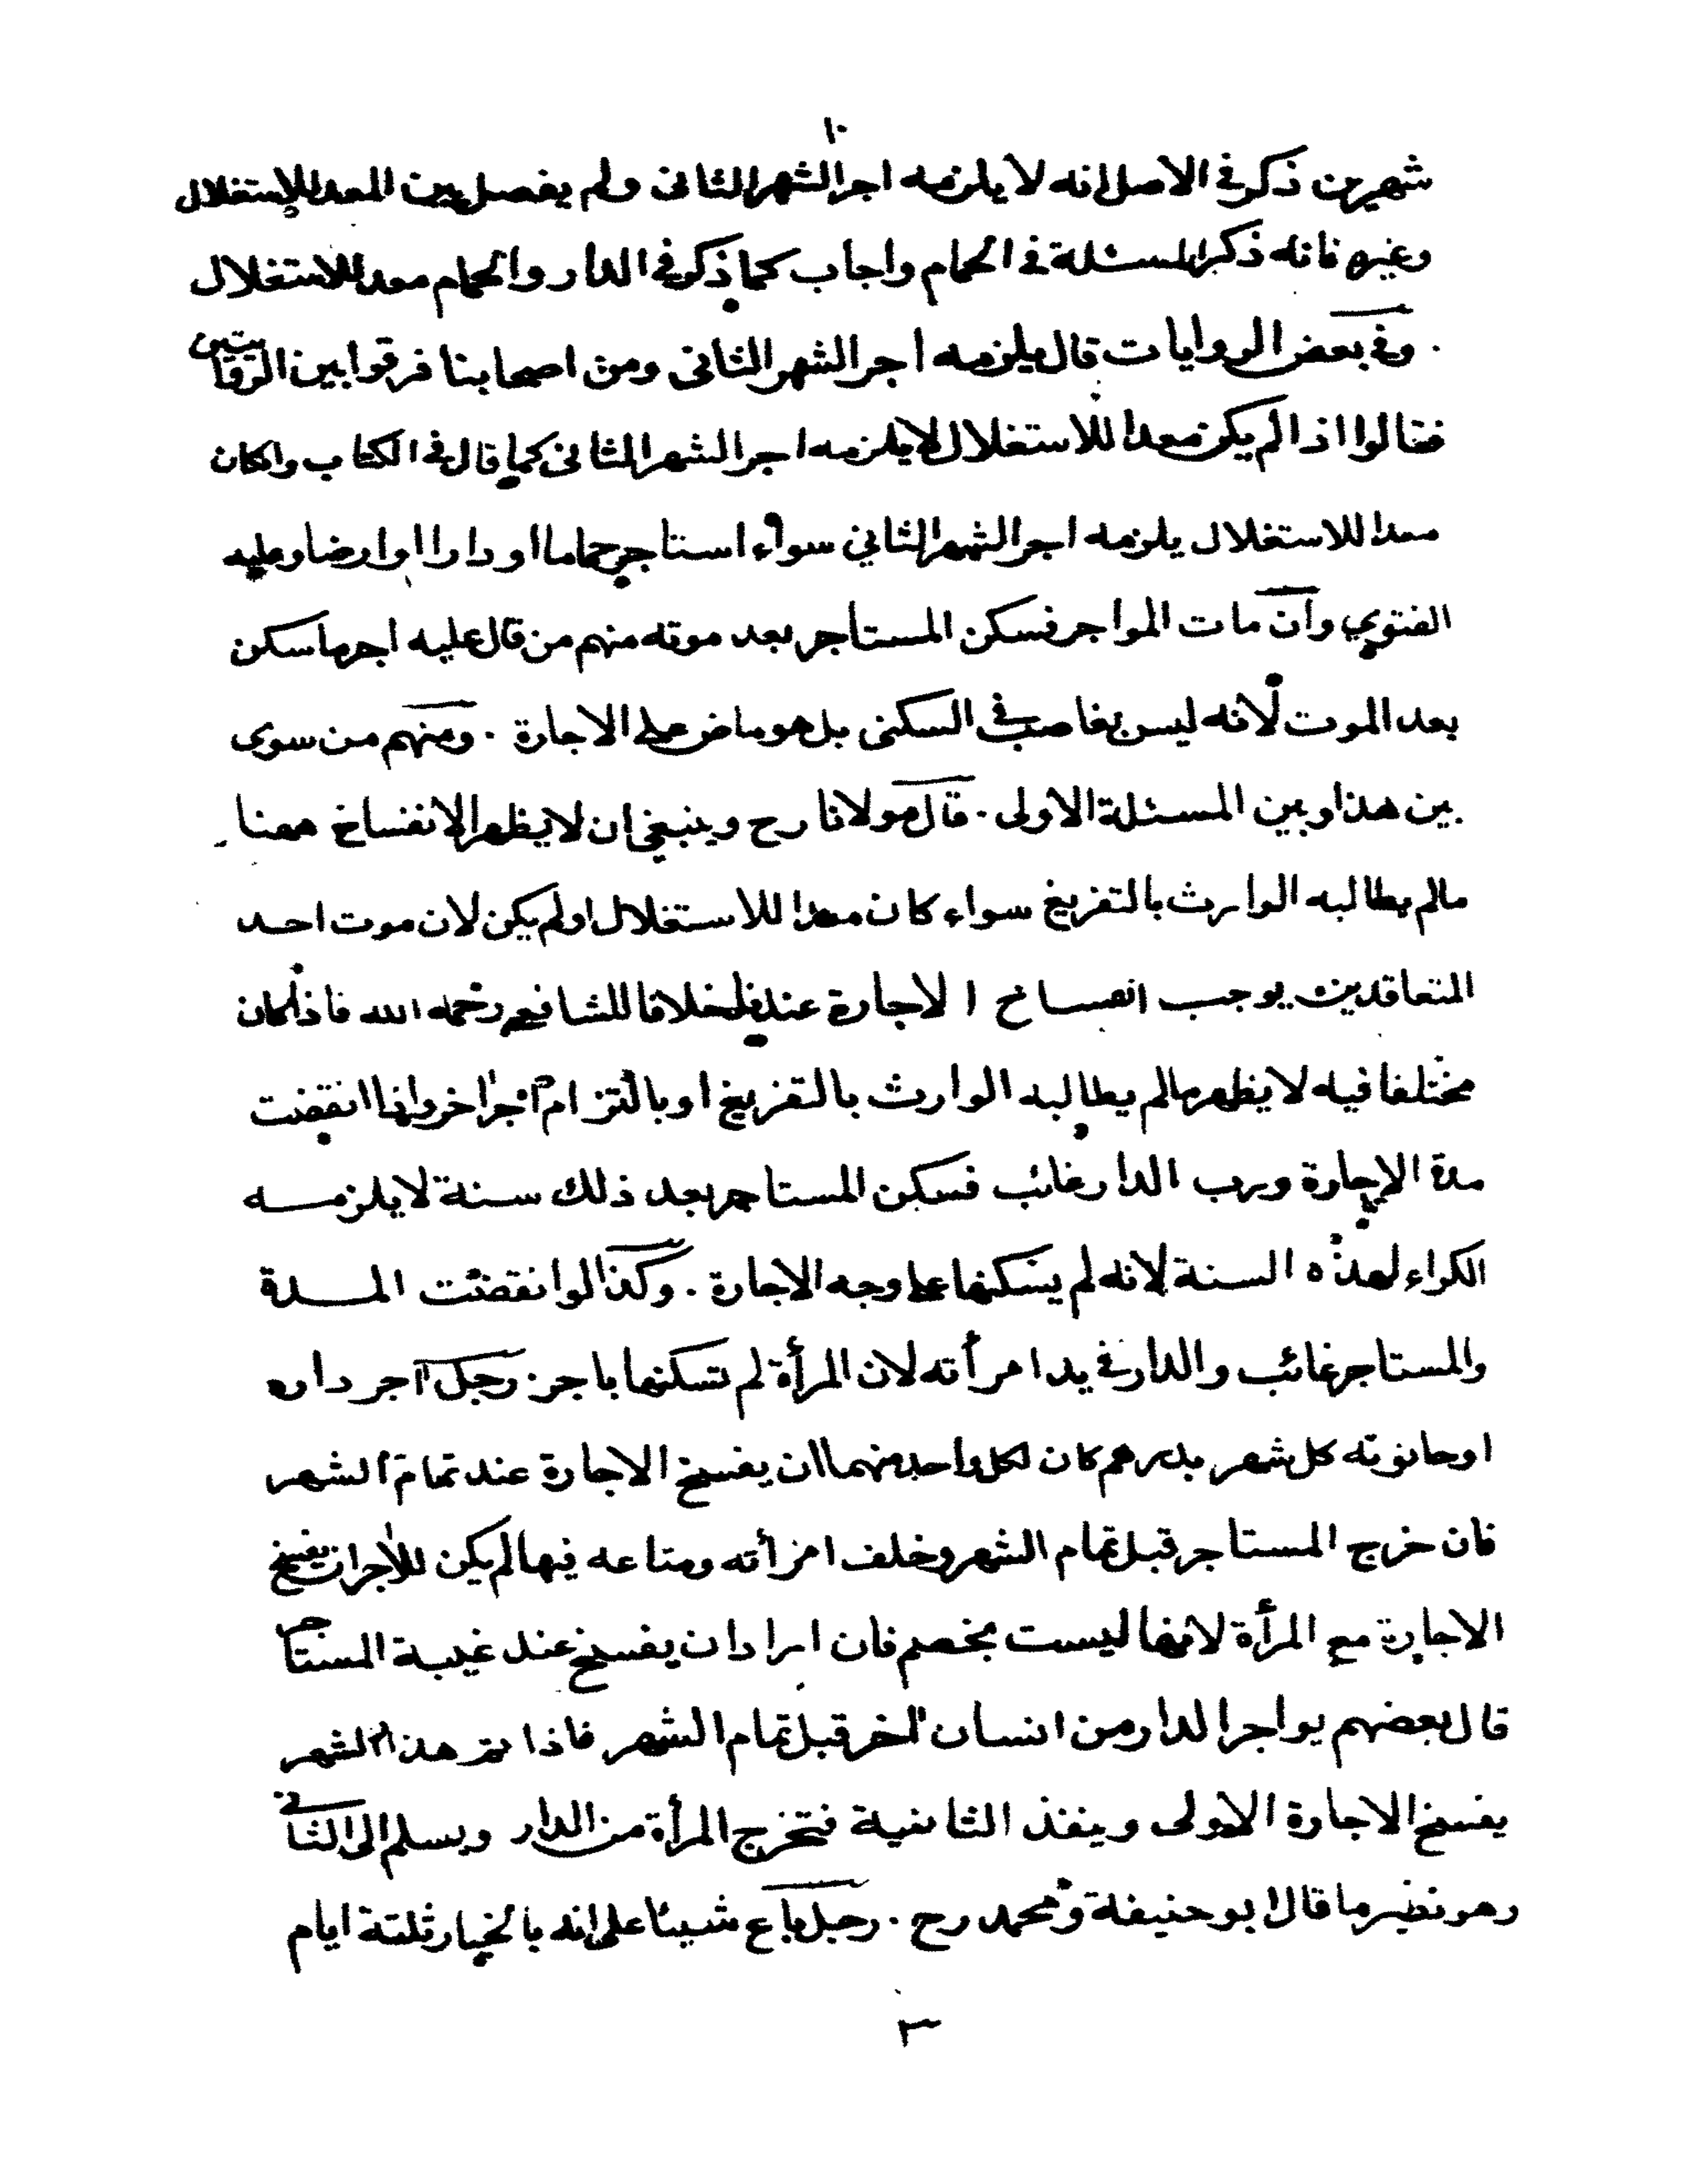 ١٠
شهرين ذكر في الاصل انه لا يلزمه اجر الشهر الثاني ولم يفصل بين المعد للاستغلال
وغيره فانه ذكر المسئلة في الحمام واجاب كما ذكر في الدار والحمام معد للاستغلال
. وفي بعض الروايات قال يلزمه اجر الشهر الثاني ومن اصحابنا فرقوا بين الروايتين
فقالوا اذا لم يكن معدا للاستغلال لا يلزمه اجر الشهر الثاني كما قال في الكتاب وان كان
معدا للاستغلال يلزمه اجر الشهر الثاني سواء استاجر حماما او دارا او ارضا وعليه
الفتوي وان مات المواجر فسكن المستاجر بعد موته منهم من قال عليه اجر ما سكن
بعد الموت لانه ليس بغاصب في السكنى بل هو ماض على الاجارة . ومنهم من سوى
بين هذا وبين المسئلة الاولى . قال مولانا رح وينبغي ان لا يظهر الانفساخ ههنا
مالم يطالبه الوارث بالتفريغ سواء كان معدا للاستغلال او لم يكن لان موت احد
المتعاقدين يوجب انفساخ الاجارة عندنا خلافا للشافعي رحمه الله فاذا كان
مختلفا فيه لا يظهر مالم يطالبه الوارث بالتفريغ او بالتزام اجر اخر واذا انقضت
مدة الاجارة ورب الدار غائب فسكن المستاجر بعد ذلك سنة لا يلزمه
الكراء لهذه السنة لانه لم يسكنها على وجه الاجارة . وكذا لو انقضت المدة
والمستاجر غائب والدار في يد امرأته لان المرأة لم تسكنها باجر . رجل آجر داره
او حانوته كل شهر بدرهم كان لكل واحد منهما ان يفسخ الاجارة عند تمام الشهر
فان خرج المستاجر قبل تمام الشهر وخلف امرأته ومتاعه فيها لم يكن للآجر ان يفسخ
الاجارة مع المرأة لانها ليست بخصم فان اراد ان يفسخ عند غيبة المستاجر
قال بعضهم يواجر الدار من انسان آخر قبل تمام الشهر فاذا تم هذا الشهر
يفسخ الاجارة الاولى وينفذ الثانية فتخرج المرأة من الدار ويسلم الى الثاني
وهو نظير ما قال ابو حنيفة ومحمد رح . رجل باع شيئا على انه بالخيار ثلثة ايام